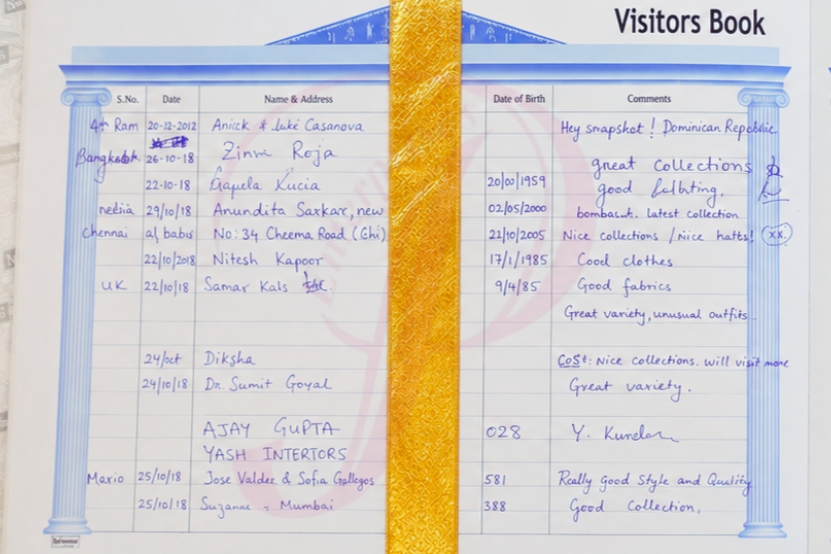 Visitors Book
S.No. Date Name & Address Date of Birth Comments
4th Ram 20-12-2012 Anick & Luke Casanova Hey snapshot! Dominican Republic
26-10-18 Zinni Roja great Collections
22-10-18 Kucia 20/00/1959 good
29/10/18 Anundita Sarkar, new 02/05/2000 latest collection
Chennai al babu No: 34 Cheema Road (Chi) 21/10/2005 Nice collections / Nice hatts! xx
22/10/2018 Nitesh Kapoor 17/1/1985 Cood clothes
UK 22/10/18 Samar Kals 9/4/85 Good fabrics
Great variety, unusual outfits
24/oct Diksha Cost: Nice collections. will visit more
24/10/18 Dr. Sumit Goyal Great variety.
AJAY GUPTA 028 Y.
YASH INTERTORS
Mario 25/10/18 Jose Valdez & Sofia Gallegos 581 Really Good Style and Quality
25/10/18 Suzanne, Mumbai 388 Good Collection,